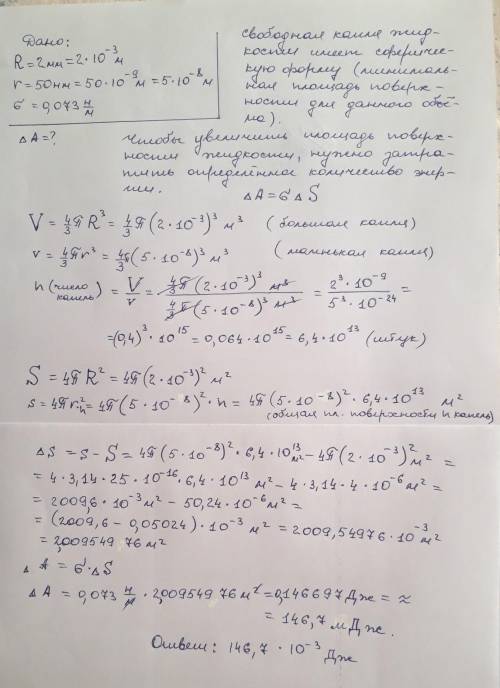 Дано:
R = 2мм = 2·10⁻³ м
r = 50нм = 50·10⁻⁹ м = 5·10⁻⁸ м
σ = 0,073 Н/м
ΔA = ?
Свободная капля жид-
кости имеет сферичес-
кую форму (минималь-
ная площадь поверх-
ности для данного объё-
ма).
Чтобы увеличить площадь поверх-
ности жидкости, нужно затра-
тить определённое количество энер-
гии.
ΔA = σ ΔS
V = 4/3 π R³ = 4/3 π (2·10⁻³)³ м³ (большая капля)
v = 4/3 π r³ = 4π/3 (5·10⁻⁸)³ м³ (маленькая капля)
n (число капель) = V/v = 4/3 π (2·10⁻³)³ м³ / 4/3 π (5·10⁻⁸)³ м³ = 2³·10⁻⁹ / 5³·10⁻²⁴ =
= (0,4)³·10¹⁵ = 0,064·10¹⁵ = 6,4·10¹³ (штук)
S = 4πR² = 4π(2·10⁻³)² м²
s = 4πr²·n = 4π(5·10⁻⁸)²·n = 4π(5·10⁻⁸)²·6,4·10¹³ м²
(общая пл. поверхности n капель)
ΔS = s - S = 4π(5·10⁻⁸)²·6,4·10¹³ м² - 4π(2·10⁻³)² м² =
= 4·3,14·25·10⁻¹⁶·6,4·10¹³ м² - 4·3,14·4·10⁻⁶ м² =
= 2009,6·10⁻³ м² - 50,24·10⁻⁶ м² =
= (2009,6 - 0,05024)·10⁻³ м² = 2009,54976·10⁻³ м²
= 2,00954976 м²
ΔA = σ·ΔS
ΔA = 0,073 Н/м · 2,00954976 м² = 0,146697 Дж = ≈
= 146,7 мДж.
Ответ: 146,7·10⁻³ Дж